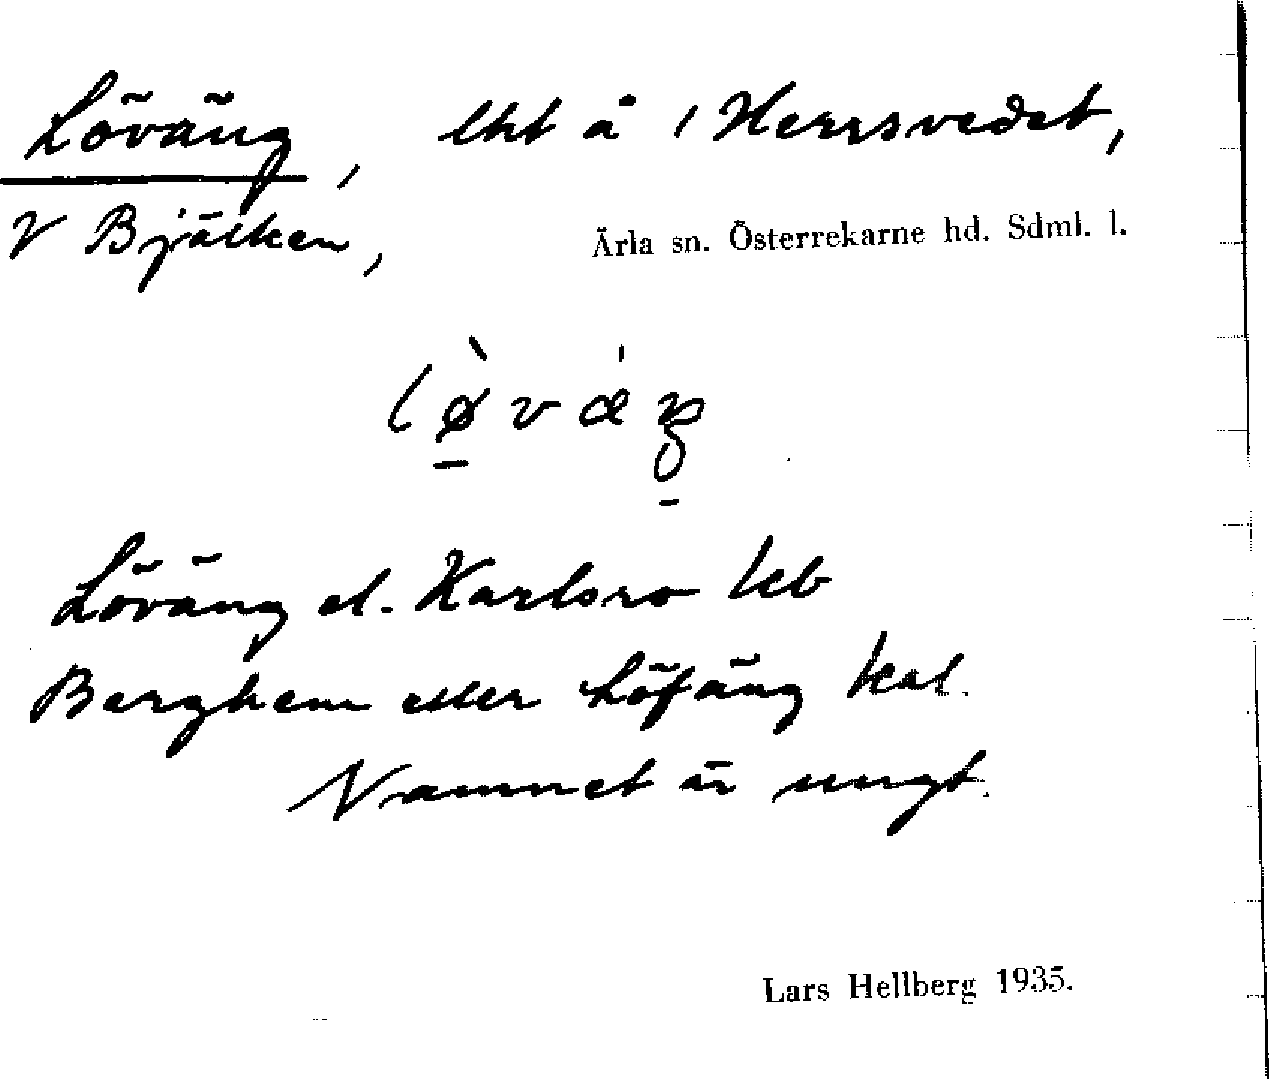 Löväng, lht å 1 Herrsvedet,
V Bjälken,
Ärla sn. Österrekarne hd. Sdml. l.
Löväng el. Karlsro kb
Berghem eller Löfäng kal.
Namnet är ungt.
Lars Hellberg 1935.